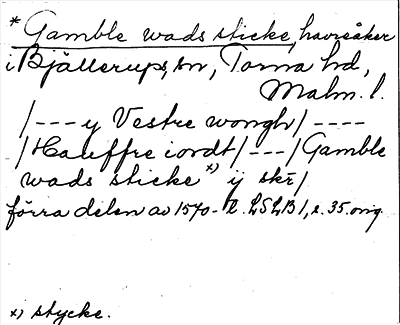 * Gamble wads sticke, havreåker
i Bjällerups sn, Torna hd,
Malm. l.
/--- y Vestre wongh/ ----
/Hauffre iordt/ --- /Gamble
wads sticke x) ij skr/
förra delen av 1570-t. LSLB 1, s. 35. orig.
x) stycke.